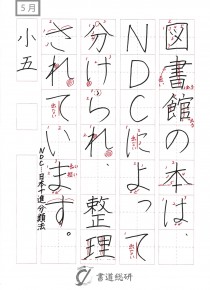 5月
図書館の本は、
NDCによって
分けられ、整理
されています。
小五
NDC：日本十進分類法
書道総研